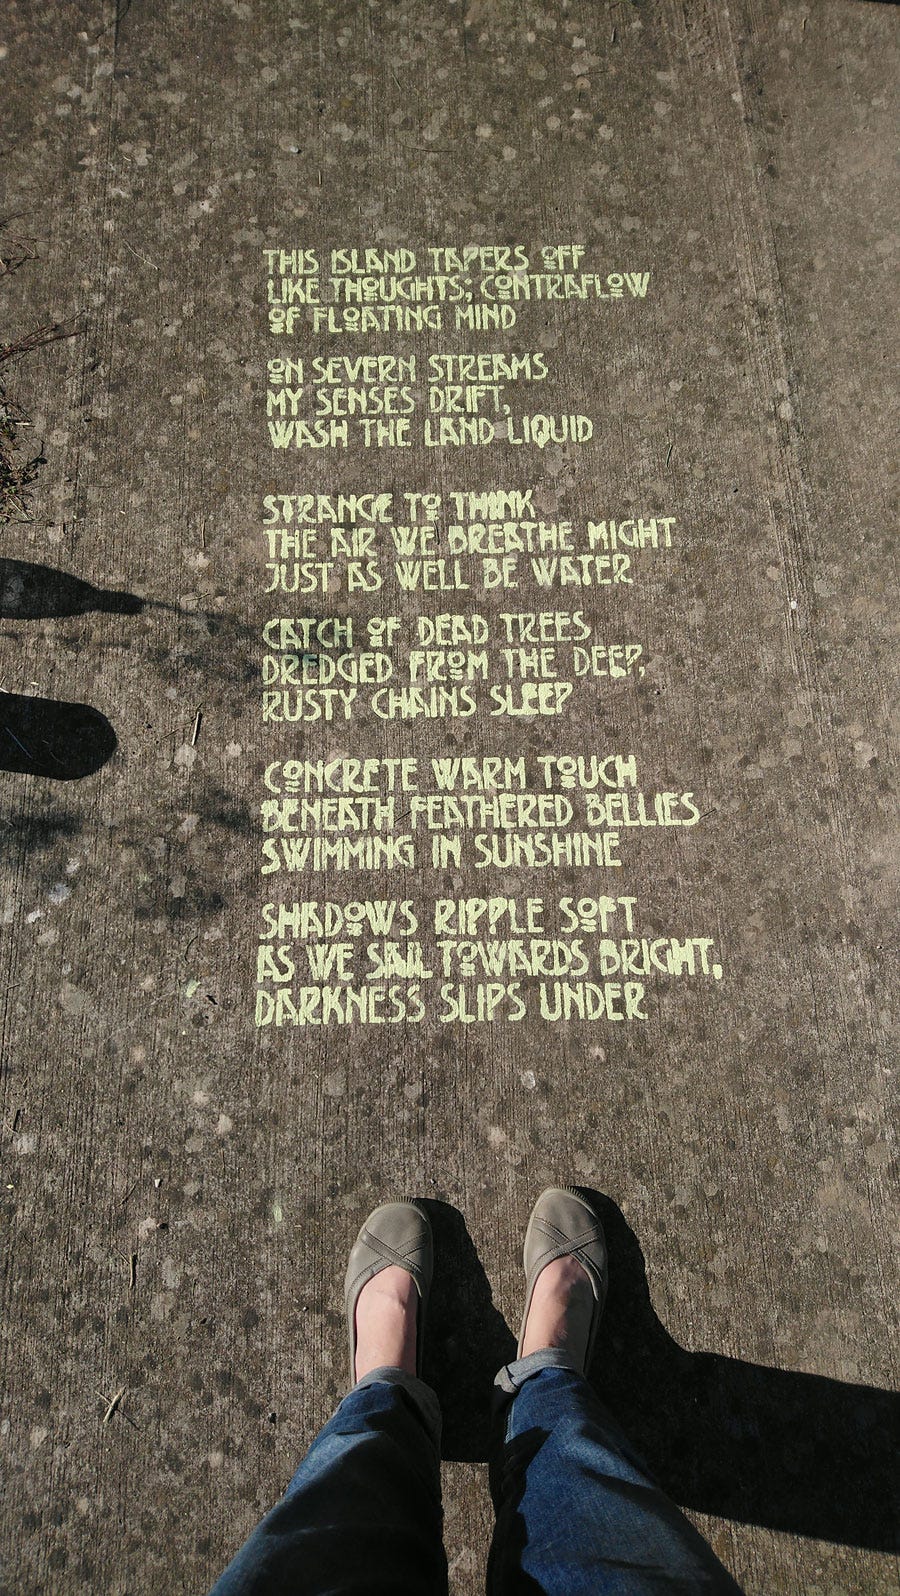 THIS ISLAND TAPERS OFF
LIKE THOUGHTS; CONTRAFLOW
OF FLOATING MIND
ON SEVERN STREAMS
MY SENSES DRIFT,
WASH THE LAND LIQUID
STRANGE TO THINK
THE AIR WE BREATHE MIGHT
JUST AS WELL BE WATER
CATCH OF DEAD TREES
DREDGED FROM THE DEEP,
RUSTY CHAINS SLEEP
CONCRETE WARM TOUCH
BENEATH FEATHERED BELLIES
SWIMMING IN SUNSHINE
SHADOWS RIPPLE SOFT
AS WE SAIL TOWARDS BRIGHT,
DARKNESS SLIPS UNDER